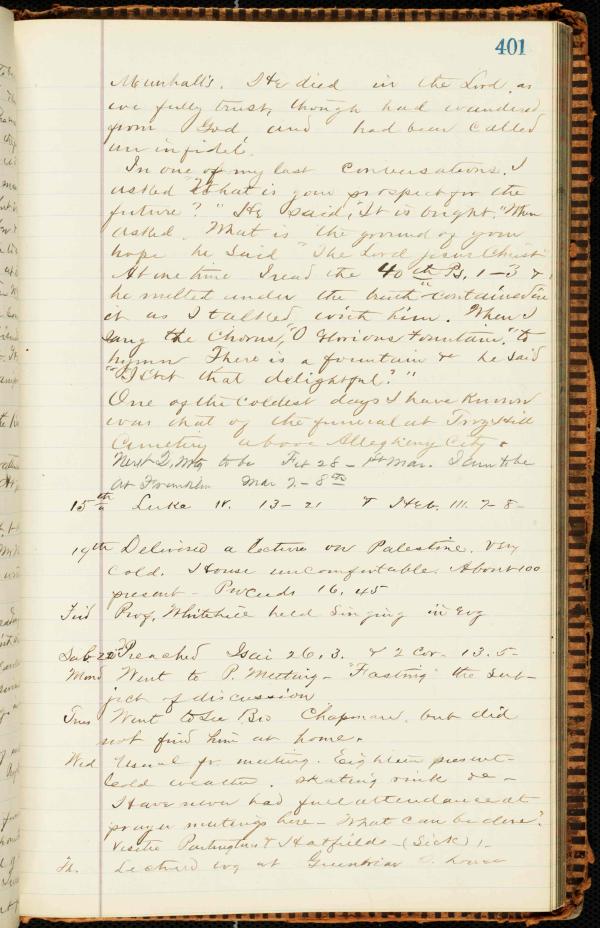 401
Munhall's. He died in the Lord, as
we fully trust, though had wandered
from God, and had been called
an infidel.
In one of my last conversations, I
asked "What is your prospect for the
future?" He said, "It is bright." When
asked. What is the ground of your
hope he said "The Lord Jesus Christ"
At one time I read the 40th Ps, 1-3 &
he melted under the truth contained in
it as I talked with him. When I
sang the Chorus, "O Glorious Fountain," to
hymn There is a fountain & he said
"Isn't that delightful?"
One of the coldest days I have known
was that of the funeral at Troy Hill
Cemetery above Allegheny City.
Next Q. Mtg to be Feb 28 - 1st Mar. I am to be
at Franklin Mar 7-8th
15th Luke 18. 13-21 & Heb. III. 7-8-
19th Delivered a lecture on Palestine. Very
cold. House uncomfortable. About 100
present - Proceeds 16,45
Frid Prof. Whitehill held Singing in Evg
Sab. 22nd Preached Isai 26.3. & 2 Cor. 13.5-
Mond Went to P. Meeting - "Fasting" the sub-
ject of discussion
Tues Went to see Bro Chapman, but did
not find him at home.
Wed Usual pr. meeting. Eighteen present-
Cold weather. skating rink &c -
I have never had full attendance at
prayer meetings here - What can be done?
Visited & Hatfields - (Sick) -
Th. Lectured Evg at Greenbriar S. house